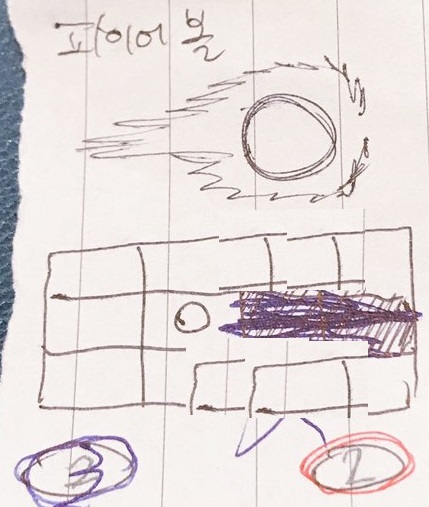 파이어볼
3 2